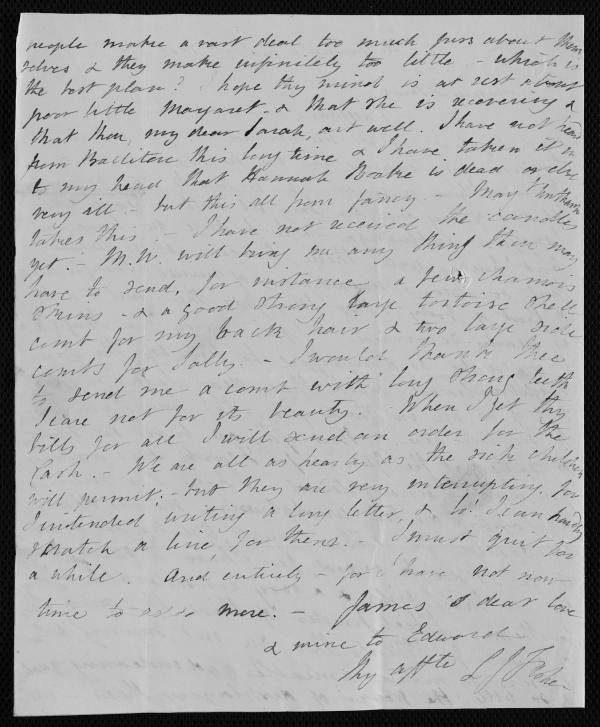 people make a vast deal too much fuss about them
selves & they make infinitely too little - which is
the best plan? I hope thy mind is at rest about
poor little Margaret - & that she is recovering &
that thou, my dear Sarah, art well. I have not heard
from Ballitore this long time & I have taken it in
to my head that Hannah is dead or else
very ill - but this all from fancy - Mary
takes this - I have not received the candles
yet. - M.W. will bring me any thing thou may
have to send, for instance a few chamois
skins - & a good strong large tortoise shell
comb for my back hair & two large side
combs for Sally. - I would thank thee
to send me a comb with long strong teeth
I care not for its beauty. When I get thy
bills for all I will send an order for the
Cash. - We are all as hearty as the sick children
will permit; - but they are very interrupting, for
I intended writing a long letter, & lo! I can hardly
scratch a line, for them. - I must quit for
a while. And entirely - for I have not now
time to add more. - James's dear love
& mine to Edward
thy affte L J Fisher